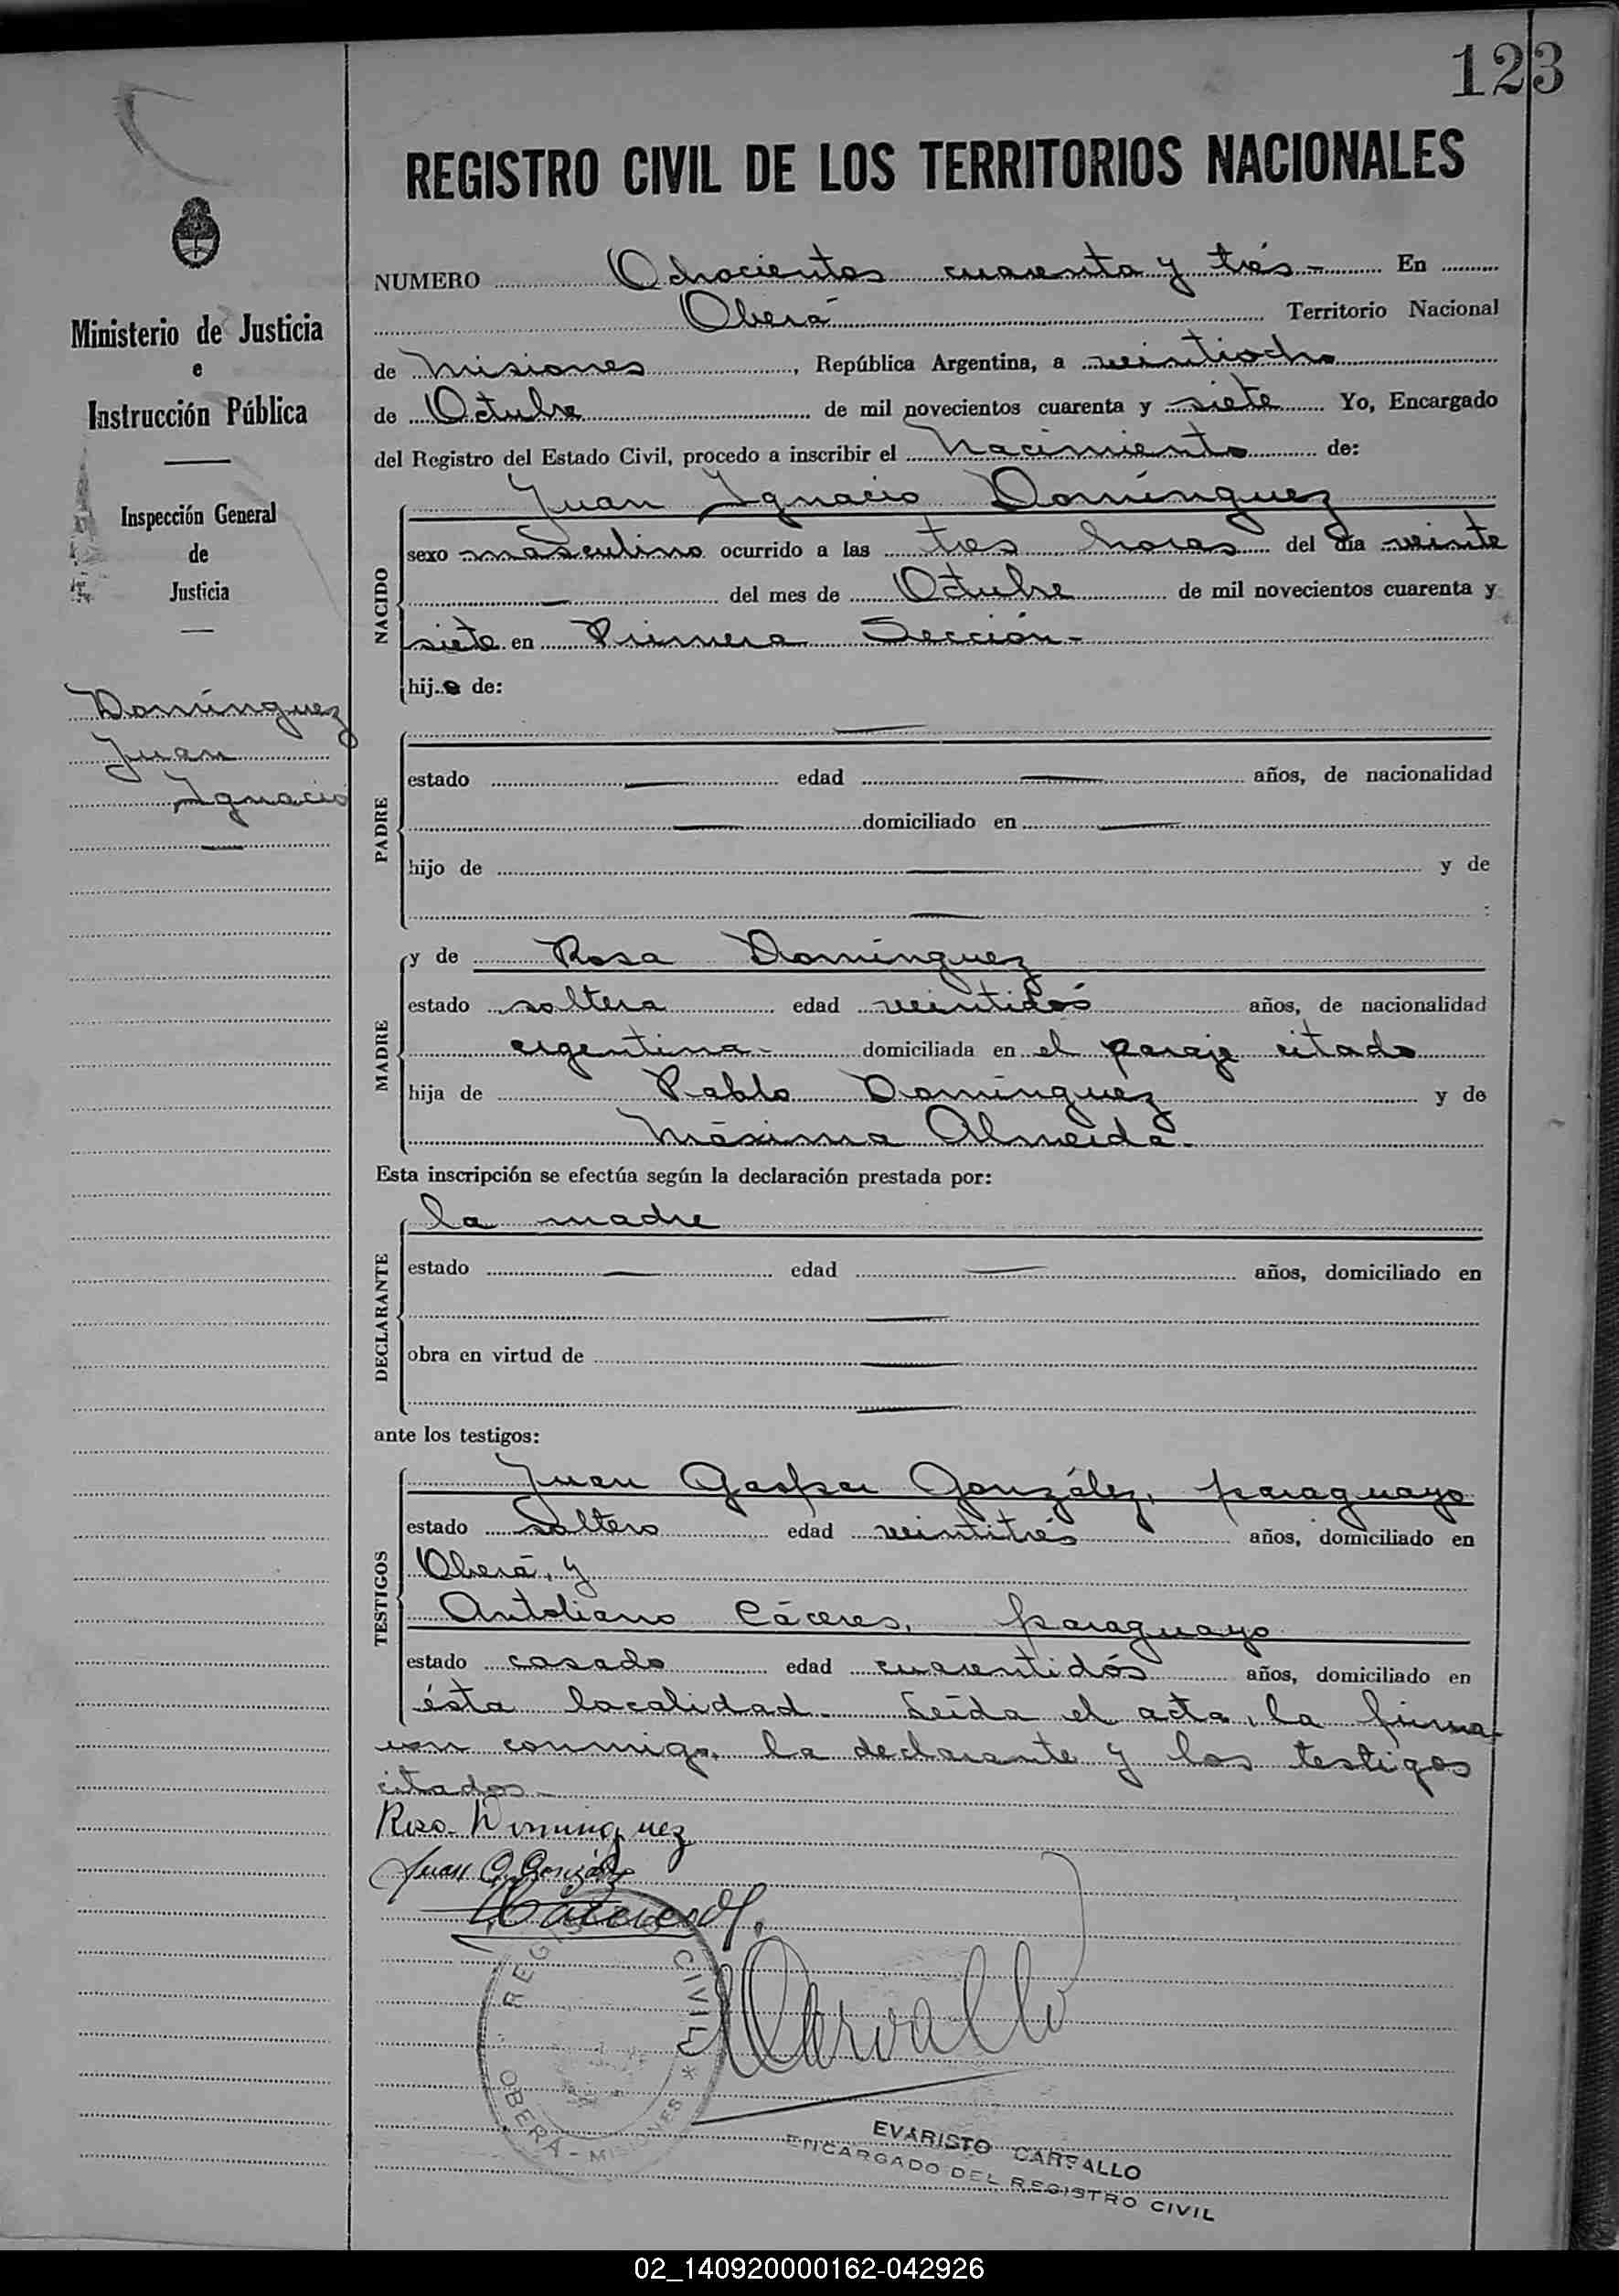 123
REGISTRO CIVIL DE LOS TERRITORIOS NACIONALES
Ministerio de Justicia
e
Instrucción Pública
Inspección General
de
Justicia
Domínguez
Juan
Ignacio
NUMERO Ochocientos cuarenta y trés - En
Oberá Territorio Nacional
de Misiones, República Argentina, a veintiocho
de Octubre de mil novecientos cuarenta y siete Yo, Encargado
del Registro del Estado Civil, procedo a inscribir el Nacimiento de:
NACIDO
Juan Ignacio Domínguez
sexo masculino ocurrido a las tres horas del día veinte
— del mes de Octubre de mil novecientos cuarenta y
siete en Primera Sección -
hijo de:
PADRE
—
estado — edad — años, de nacionalidad
— domiciliado en —
hijo de — y de
— :
MADRE
y de Rosa Domínguez
estado soltera edad veintidós años, de nacionalidad
argentina - domiciliada en el paraje citado
hija de Pablo Domínguez y de
Máxima Almeida -
Esta inscripción se efectúa según la declaración prestada por:
DECLARANTE
la madre
estado — edad — años, domiciliado en
—
obra en virtud de —
—
ante los testigos:
TESTIGOS
Juan Gaspar González, paraguayo
estado soltero edad veintitrés años, domiciliado en
Oberá, y
Antoliano Cáceres, paraguayo
estado casado edad cuarentidós años, domiciliado en
ésta localidad. Leída el acta, la firma-
ron conmigo, la declarante y los testigos
citados -
Rosa Dominguez
Juan G. González
REGISTRO CIVIL * OBERÁ - MISIONES
Carvallo
EVARISTO CARVALLO
ENCARGADO DEL REGISTRO CIVIL
02_140920000162-042926